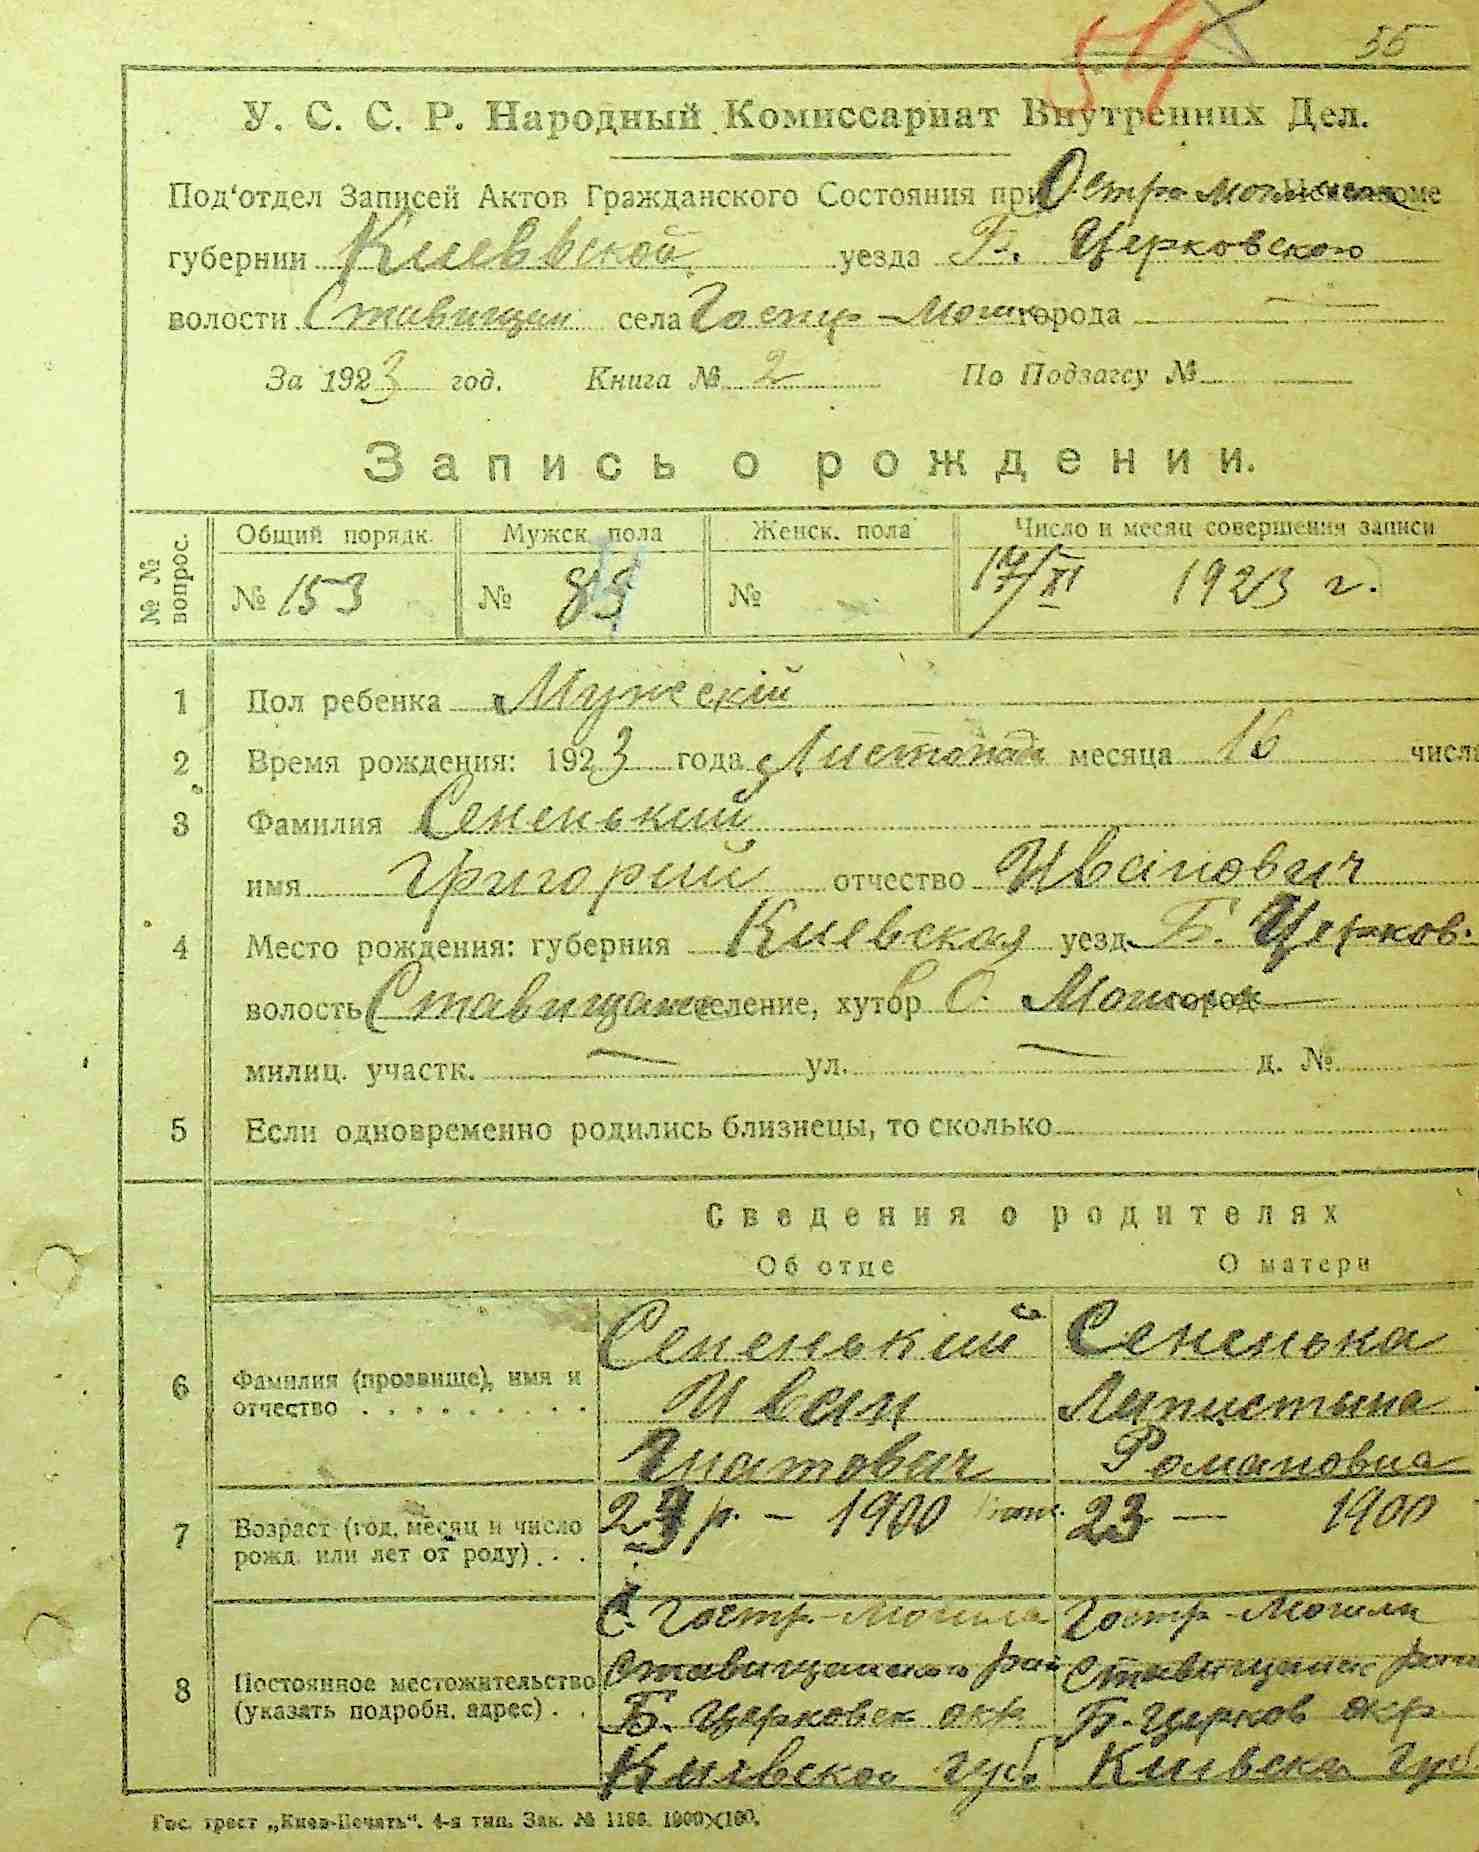 54 55
У. С. С. Р. Народный Комиссариат Внутренних Дел.
Под'отдел Записей Актов Гражданского Состояния при Остро Исполкоме
губернии Киевської уезда Б. Церковского
волости Ставищан села Гостр-Моги города —
За 1923 год. Книга № 2 По Подзагсу № —
Запись о рождении.
№ № вопрос. Общий порядк. Мужск. пола Женск. пола Число и месяц совершения записи
№ 153 № 83 № 17/XI 1923 г.
1 Пол ребенка Мужескій
2 Время рождения: 1923 года Листопада месяца 16 числа
3 Фамилия Сененький
имя Григорий отчество Иванович
4 Место рождения: губерния Киевская уезд Б. Церков.
волость Ставищанс селение, хутор О. Моги город —
милиц. участк. — ул. — д. №
5 Если одновременно родились близнецы, то сколько
Сведения о родителях
Об отце О матери
6 Фамилия (прозвище), имя и отчество . . . . . . . . . .
Сененький Сененька
Иван Лапистына
Гнатович Романовна
7 Возраст (год, месяц и число рожд. или лет от роду) . . .
23 р. - 1900 23 — 1900
8 Постоянное местожительство (указать подробн. адрес) . .
с. Гостр-Могила Гостр-Могили
Ставищанского рай Ставищанск рай
Б. Церковск окр Б. Церков окр
Київской губ Київска Губ
Гос. трест „Киев-Печать". 4-я тип. Зак. № 1186. 1000×100.